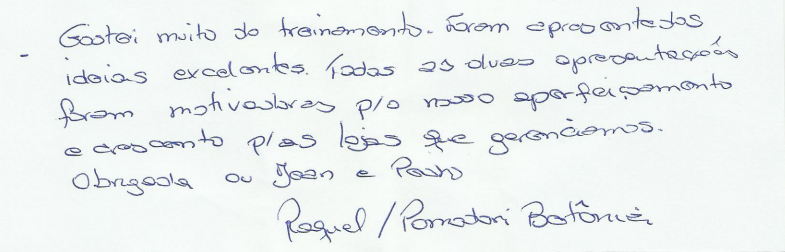 - Gostei muito do treinamento. Foram apresentadas
ideias excelentes. Todas as duas apresentações
foram motivadoras p/o nosso aperfeiçoamento
e crescento p/as lojas que gerenciamos.
Obrigada ou Jean e Paulo
Raquel / Pomodori